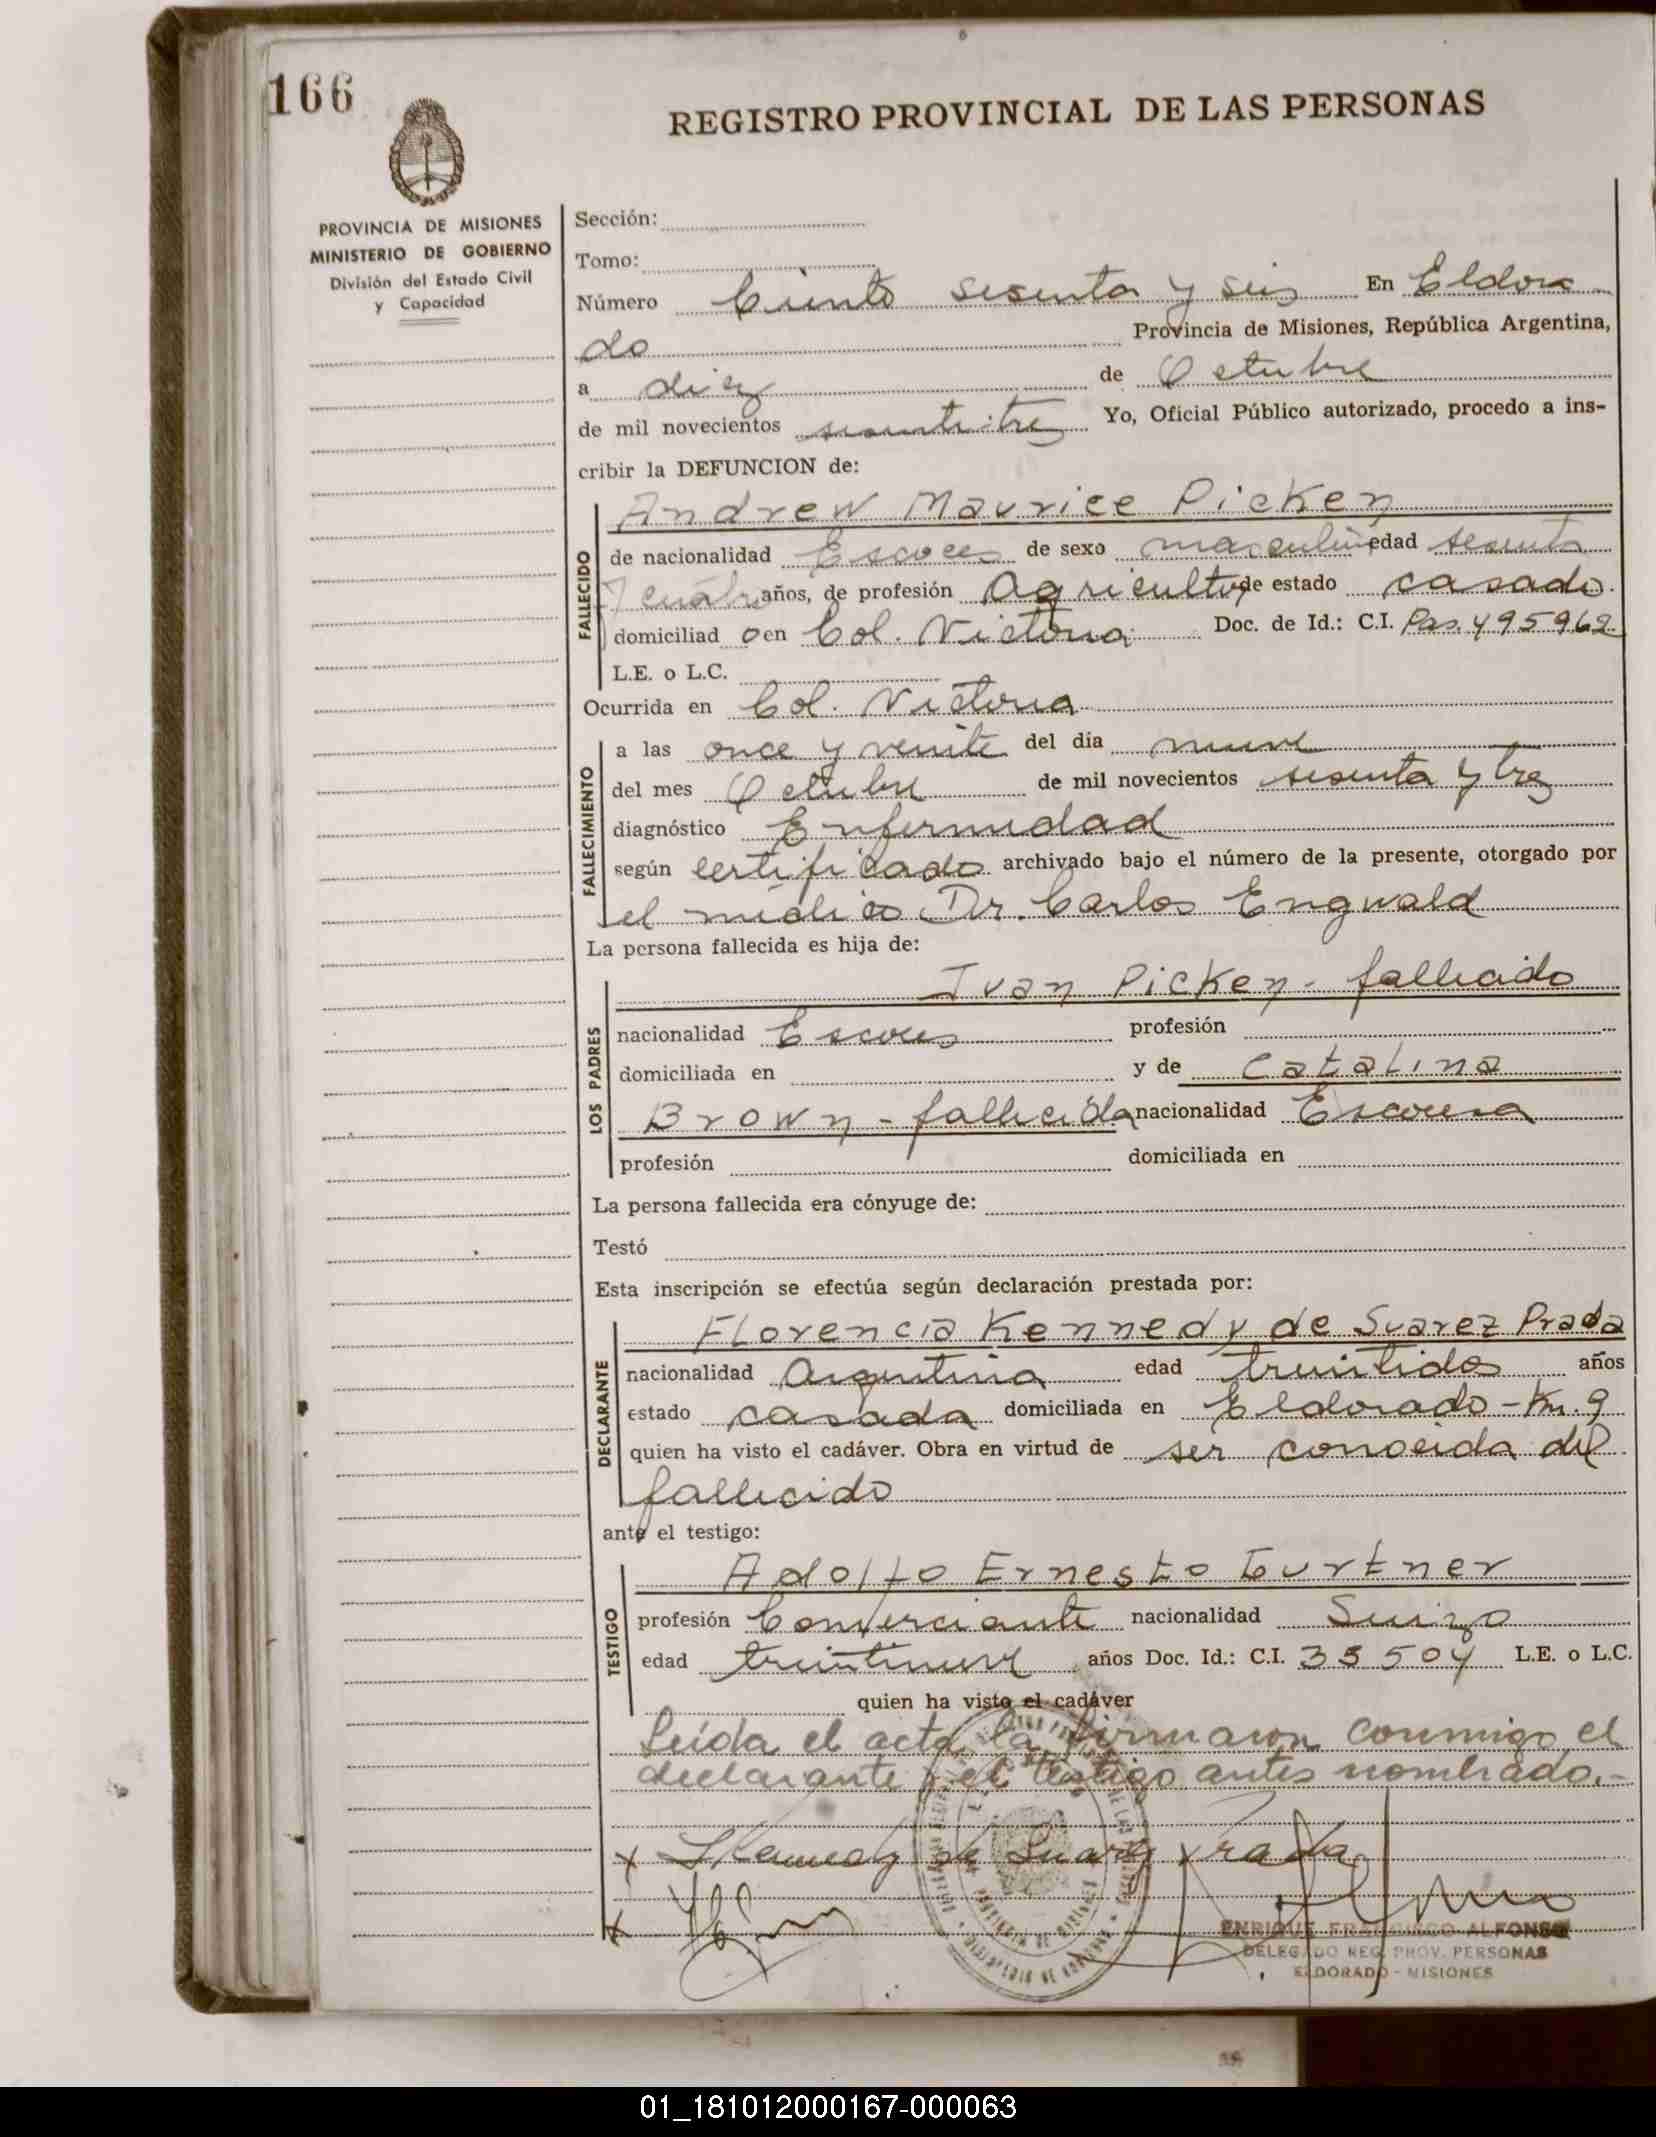 166
REGISTRO PROVINCIAL DE LAS PERSONAS
PROVINCIA DE MISIONES
MINISTERIO DE GOBIERNO
División del Estado Civil
y Capacidad
Sección:
Tomo:
Número Ciento sesenta y seis En Eldora
do Provincia de Misiones, República Argentina,
a diez de Octubre
de mil novecientos sesentitrez Yo, Oficial Público autorizado, procedo a ins-
cribir la DEFUNCION de:
FALLECIDO
Andrew Maurice Picken
de nacionalidad Escoces de sexo masculino edad sesenta
y cuatro años, de profesión Agricultor de estado casado
domiciliad o en Col. Victoria Doc. de Id.: C.I. Pas. 495962
L.E. o L.C.
Ocurrida en Col. Victoria
FALLECIMIENTO
a las once y veinte del dia nueve
del mes Octubre de mil novecientos sesenta y trez
diagnóstico Enfermedad
según certificado archivado bajo el número de la presente, otorgado por
el médico Dr. Carlos Engwald
La persona fallecida es hija de:
LOS PADRES
Juan Picken - fallecido
nacionalidad Escoces profesión
domiciliada en y de Catalina
Brown - fallecida nacionalidad Escocesa
profesión domiciliada en
La persona fallecida era cónyuge de:
Testó
Esta inscripción se efectúa según declaración prestada por:
DECLARANTE
Florencia Kennedy de Suarez Prada
nacionalidad Argentina edad treintidos años
estado casada domiciliada en Eldorado - Km. 9
quien ha visto el cadáver. Obra en virtud de ser conocida del
fallecido
ante el testigo:
TESTIGO
Adolfo Ernesto Gurtner
profesión Comerciante nacionalidad Suizo
edad treintinueve años Doc. Id.: C.I. 33504 L.E. o L.C.
quien ha visto el cadáver
Leída el acta la firmaron conmigo el
declarante y el testigo antes nombrado.-
x Kennedy de Suarez Prada
x
ENRIQUE FRANCISCO ALFONSO
DELEGADO REG. PROV. PERSONAS
ELDORADO - MISIONES
01_181012000167-000063